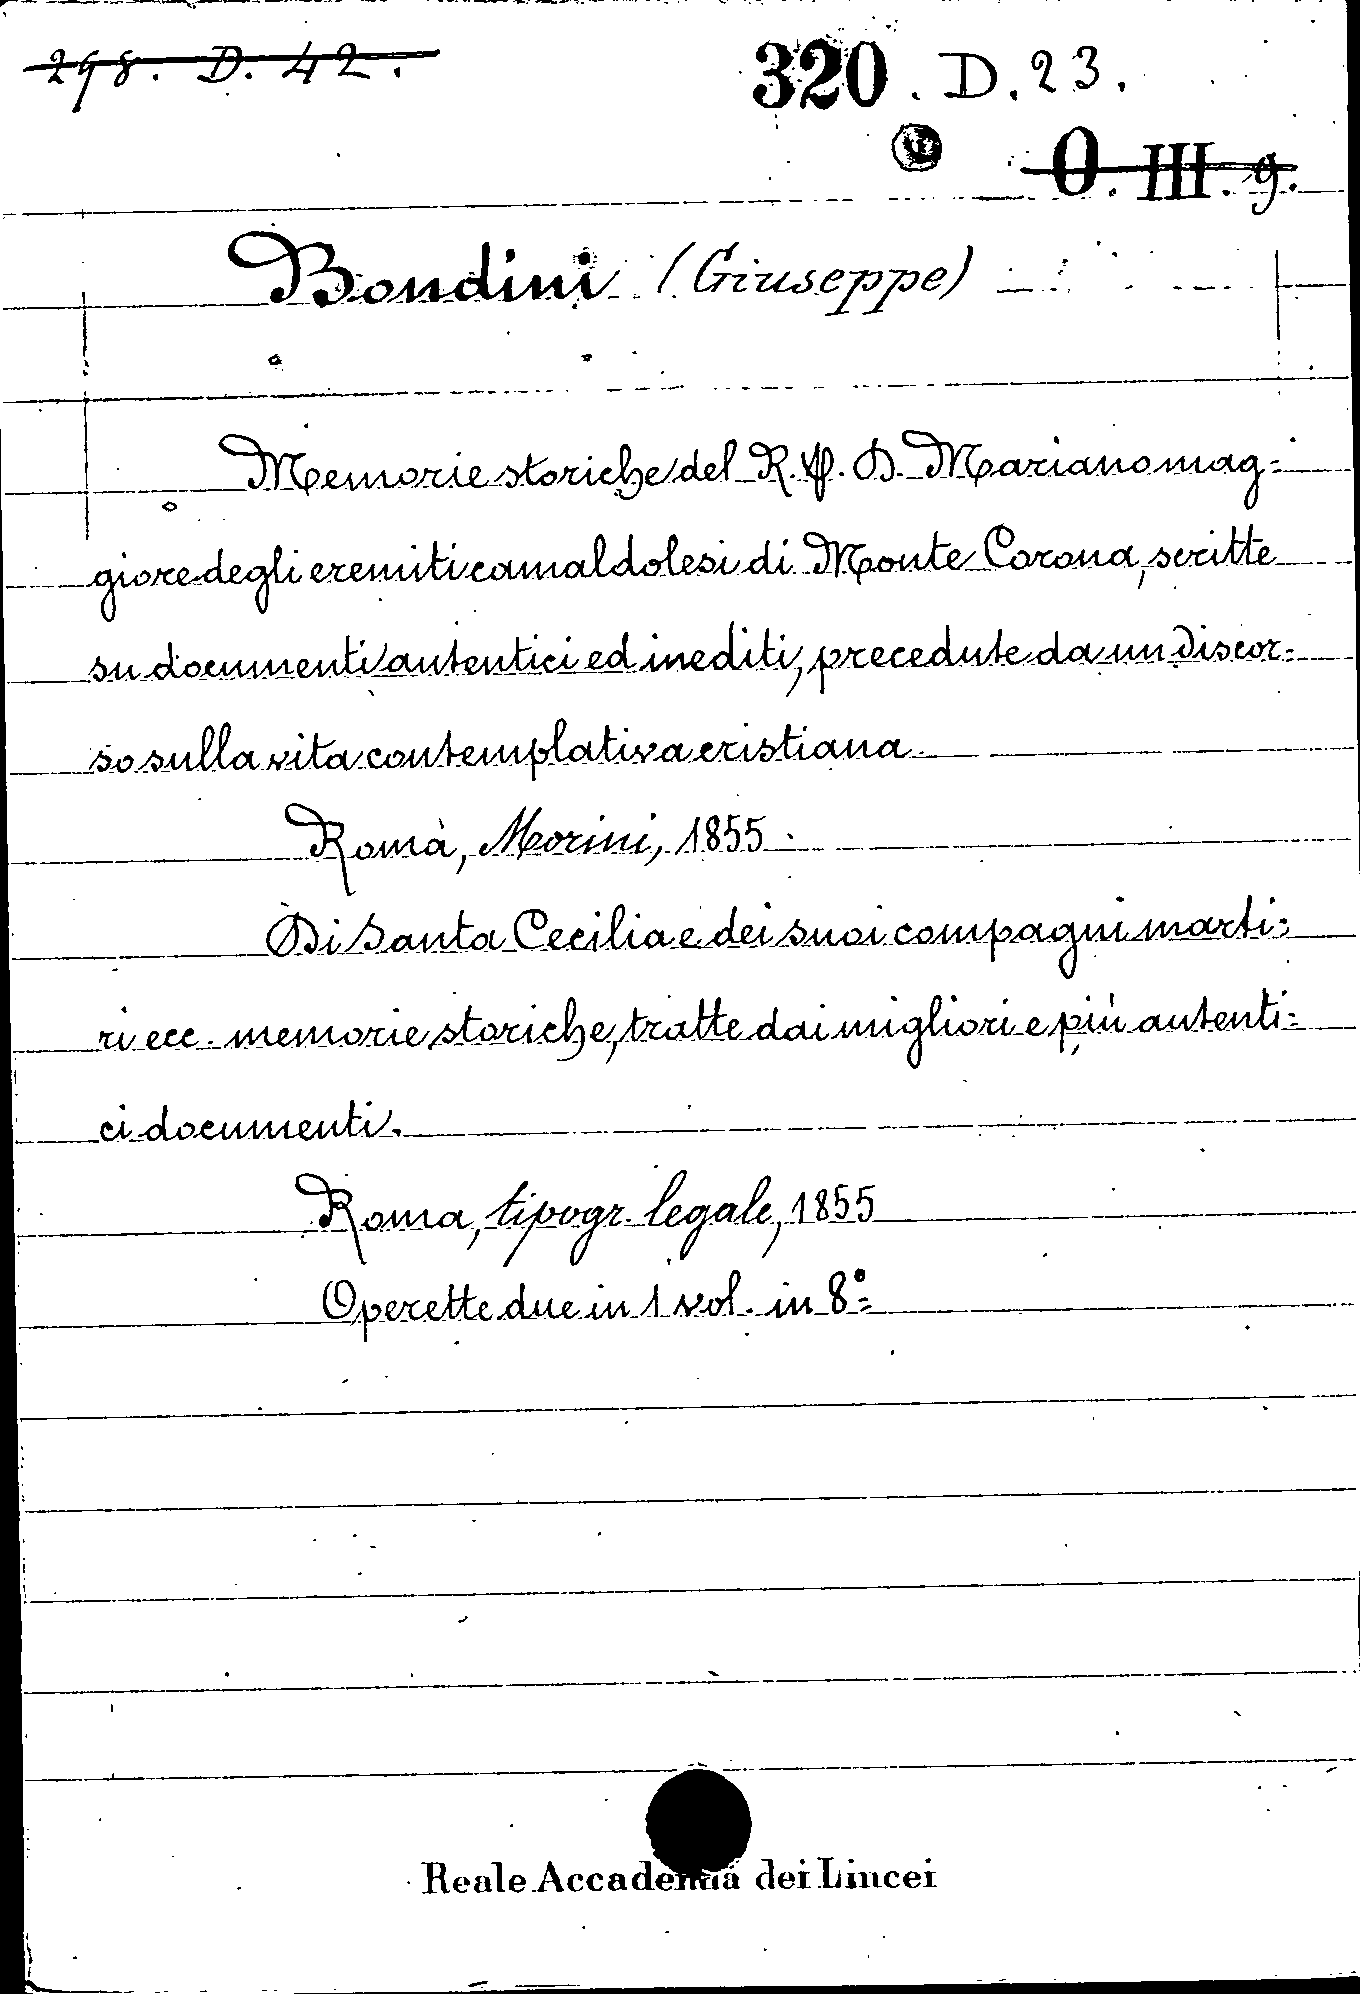 298. D. 42.
320. D. 23.
O. III. 9.
Bondini (Giuseppe)
Memorie storiche del R. P. D. Mariano mag=
giore degli eremiti camaldolesi di Monte Corona, scritte
su documenti autentici ed inediti, precedute da un discor=
so sulla vita contemplativa cristiana
Roma, Morini, 1855.
Di Santa Cecilia e dei suoi compagni marti=
ri ecc. memorie storiche, tratte dai migliori e più autenti=
ci documenti.
Roma, tipogr. legale, 1855
Operette due in 1 vol. in 8°
Reale Accademia dei Lincei